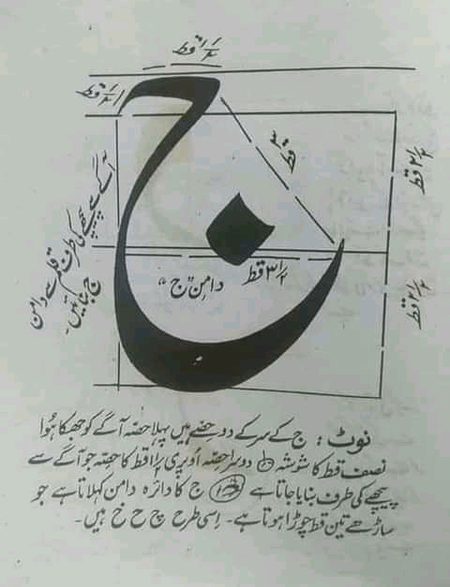 ۱ ۱/۴ قط
۱/۴ ۱ قط
ج
۳ قط
۲ ۱/۴ قط
۲ ۱/۴ قط
۳ ۱/۲ قط
دامن "ج"
آگے سے پیچھے کی طرف قلم سے دامن
ج بناتے ہیں۔
نوٹ : ج کے سر کے دو حصے ہیں پہلا حصہ آگے کو جھکا ہُوا
نصف قط کا شوشہ دوسرا حصہ اُوپری ۱ ۱/۴ قط کا حصہ جو آگے سے
پیچھے کی طرف بنایا جاتا ہے ج کا دائرہ دامن کہلاتا ہے جو
ساڑھے تین قط چوڑا ہوتا ہے۔ اِسی طرح چ ح خ ہیں۔